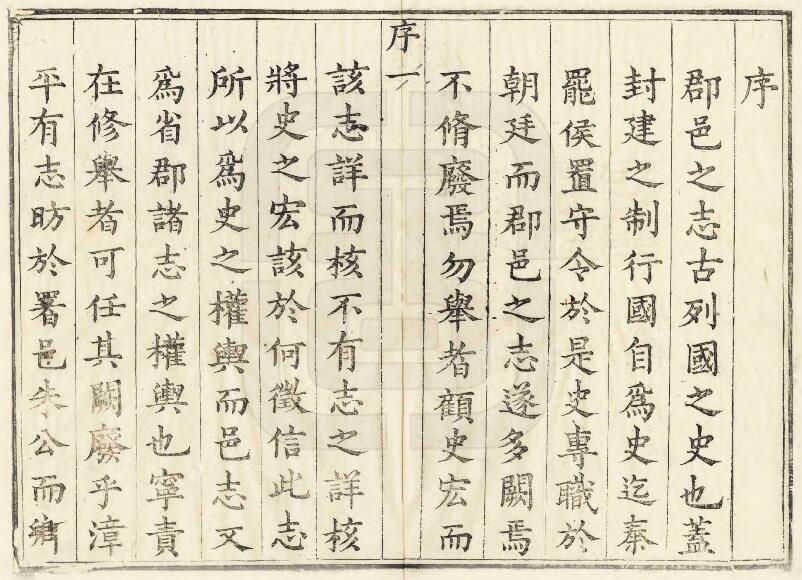 序
郡邑之志古列國之史也蓋
封建之制行國自爲史迄秦
罷侯置守令於是史專職於
朝廷而郡邑之志遂多闕焉
不脩廢焉勿舉者顧史宏而
序一
該志詳而核不有志之詳核
將史之宏該於何徵信此志
所以爲史之權輿而邑志又
爲省郡諸志之權輿也寧責
在修舉者可任其闕廢乎漳
平有志昉於署邑朱公而續